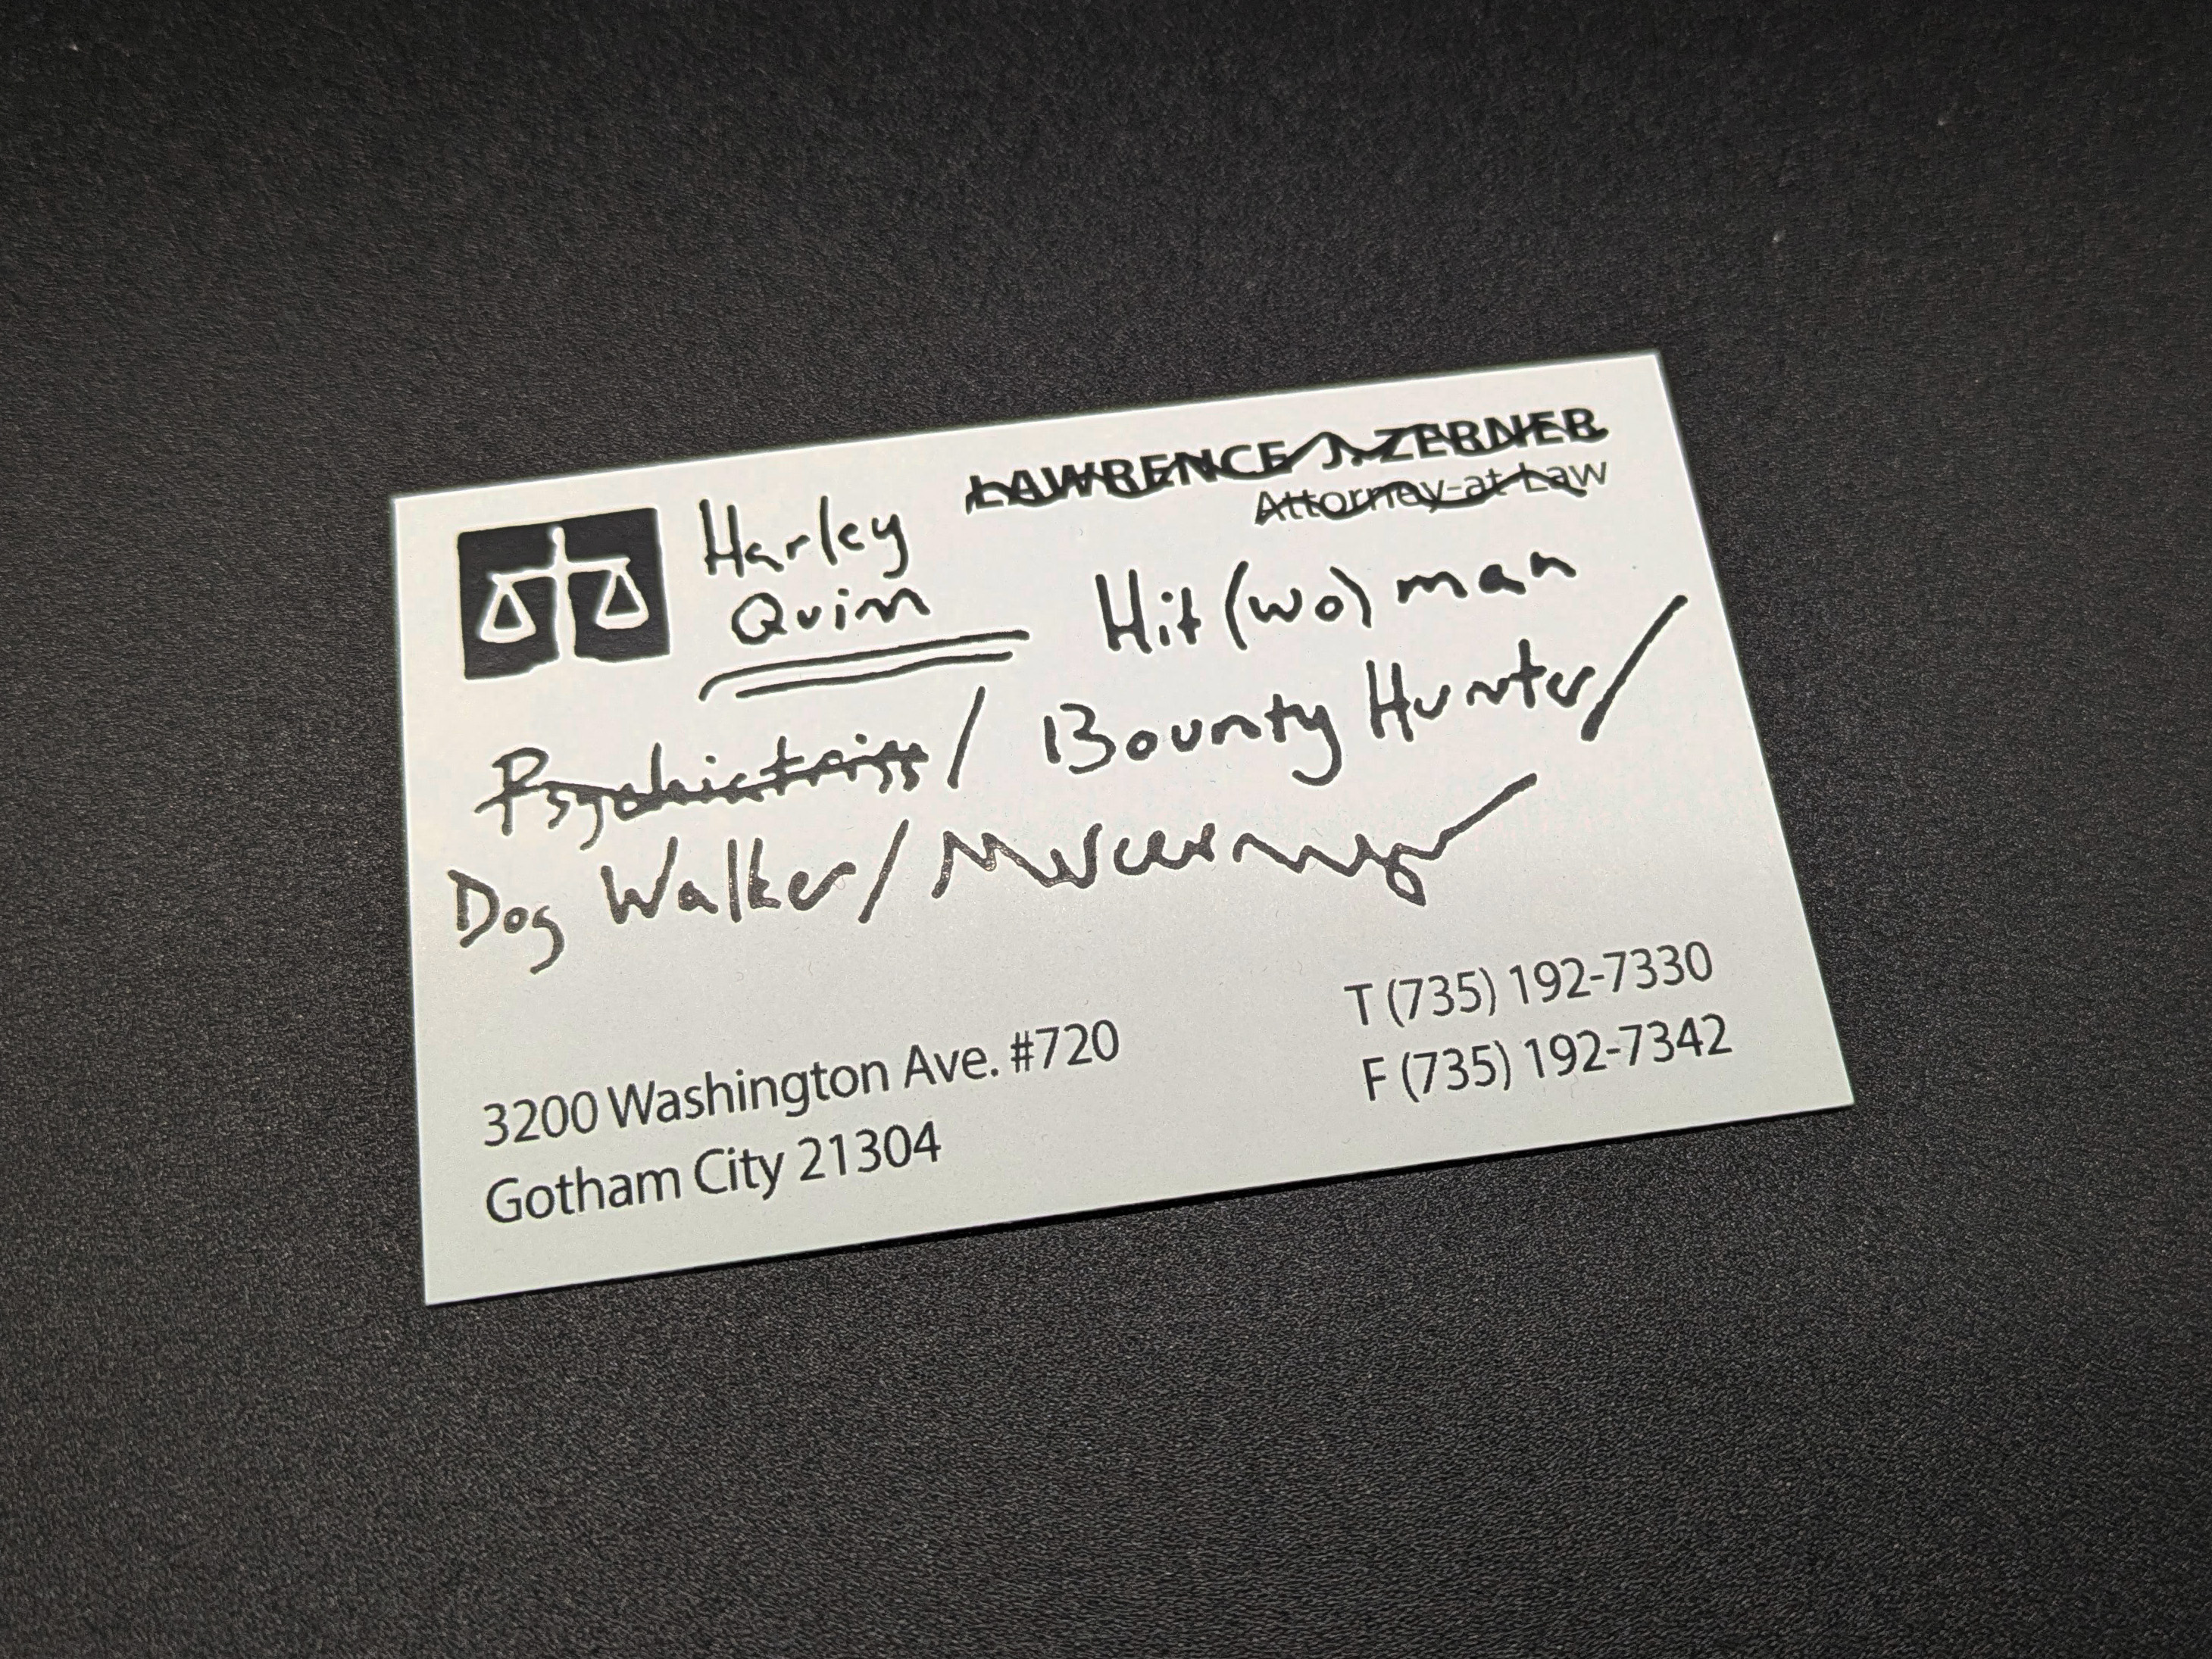 LAWRENCE J. ZERNER
Attorney-at-Law
Harley
Quinn
Hit (wo) man
Psychiatrist / Bounty Hunter /
Dog Walker / Mercenary
3200 Washington Ave. #720
Gotham City 21304
T (735) 192-7330
F (735) 192-7342